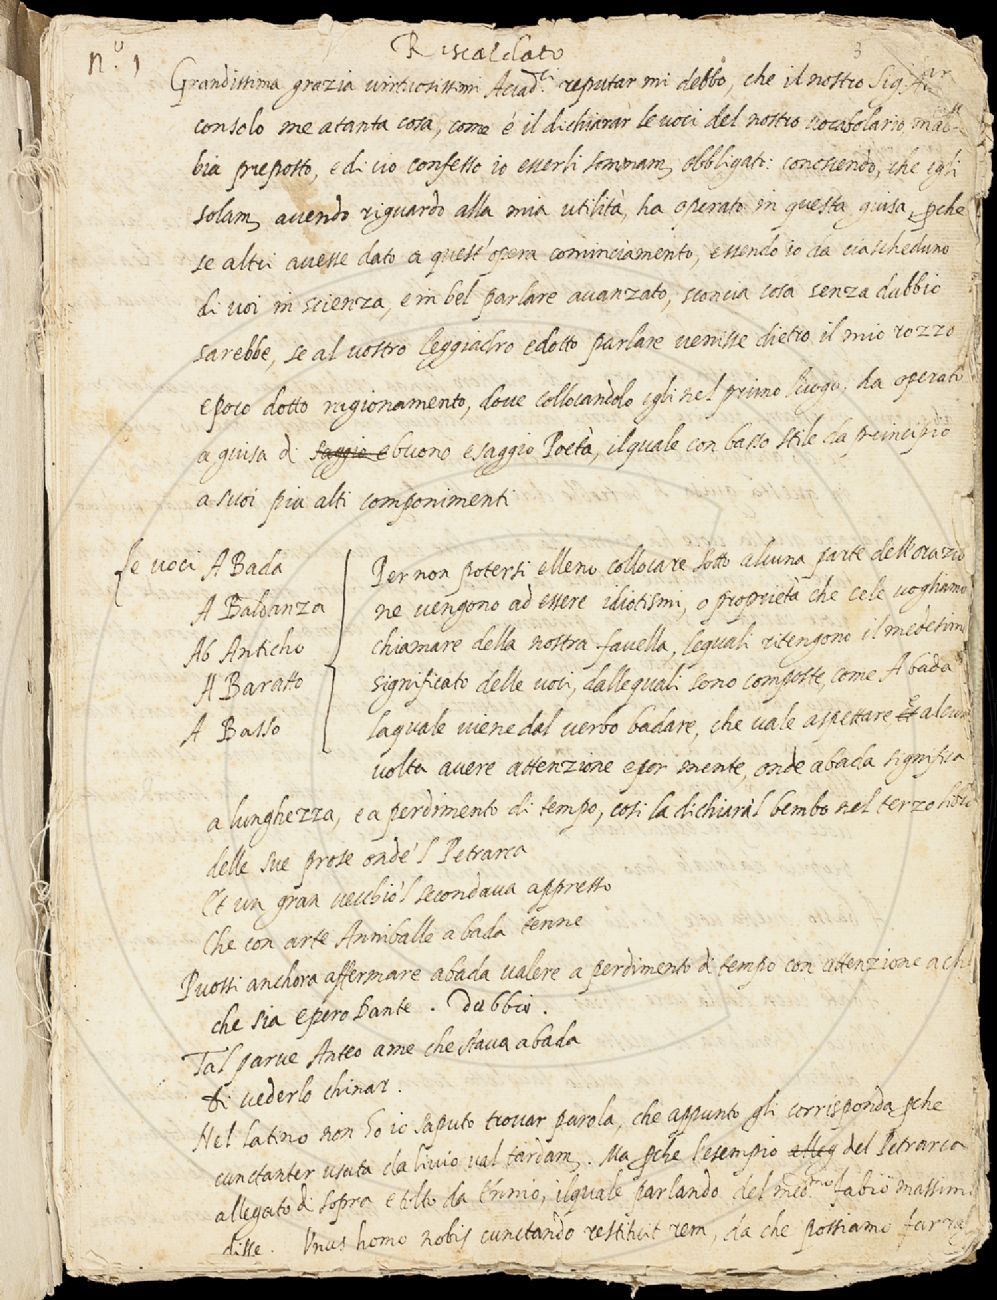 n.º 1
Riscaldato
3
Grandissima grazia virtuosissimi Accad.ci reputar mi debbo, che il nostro Sig.
consolo me a tanta cosa, come è il dichiarar le voci del nostro vocabolario, m'ab-
bia preposto, e di ciò confesso io esserli sommam. obbligato: conciosiendo, che egli
solam. avendo riguardo alla mia utilità, ha operato in questa guisa, pche
se altri avesse dato a quest'opera cominciamento, essendo io da ciascheduno
di voi in scienza, e in bel parlare avanzato, sconcia cosa senza dubbio
sarebbe, se al vostro leggiadro e dotto parlare venisse dietro il mio rozzo
e poco dotto ragionamento, dove collocandolo egli nel primo luogo, ha operato
a guisa di saggio e buono e saggio Poeta, il quale con basso stile da principio
a suoi piu alti componimenti
Le voci A Bada
A Baldanza
Ab Anticho
A Baratto
A Basso
Per non potersi elleno collocare sotto alcuna parte dell'orazio
ne vengono ad essere idiotismi, o proprietà che cele vogliamo
chiamare della nostra favella, le quali ritengono il medesim
significato delle voci, dalle quali sono composte, come A bada
la quale viene dal verbo badare, che vale aspettare Et alcun
volta avere attenzione e por mente, onde abada significa
a lunghezza, e a perdimento di tempo, cosi la dichiara'l bembo nel terzo libro
delle sue prose onde'l Petrarca
Et un gran vecchio'l secondava appresso
Che con arte Anniballe a bada tenne
Puossi anchora affermare abada valere a perdimento di tempo con attenzione a ch
che sia e pero Dante. Dubbio.
Tal parve Anteo a me che stava a bada
Di vederlo chinar.
Nel latino non ho io saputo trovar parola, che appunto gli corrisponda pche
cunctanter usata da livio val tardam. Ma pche l'esempio alleg del Petrarca
allegato di sopra e tolto da Ennio, il quale parlando del med.mo fabio massim
disse. Unus homo nobis cunctando restituit rem, da che possiamo